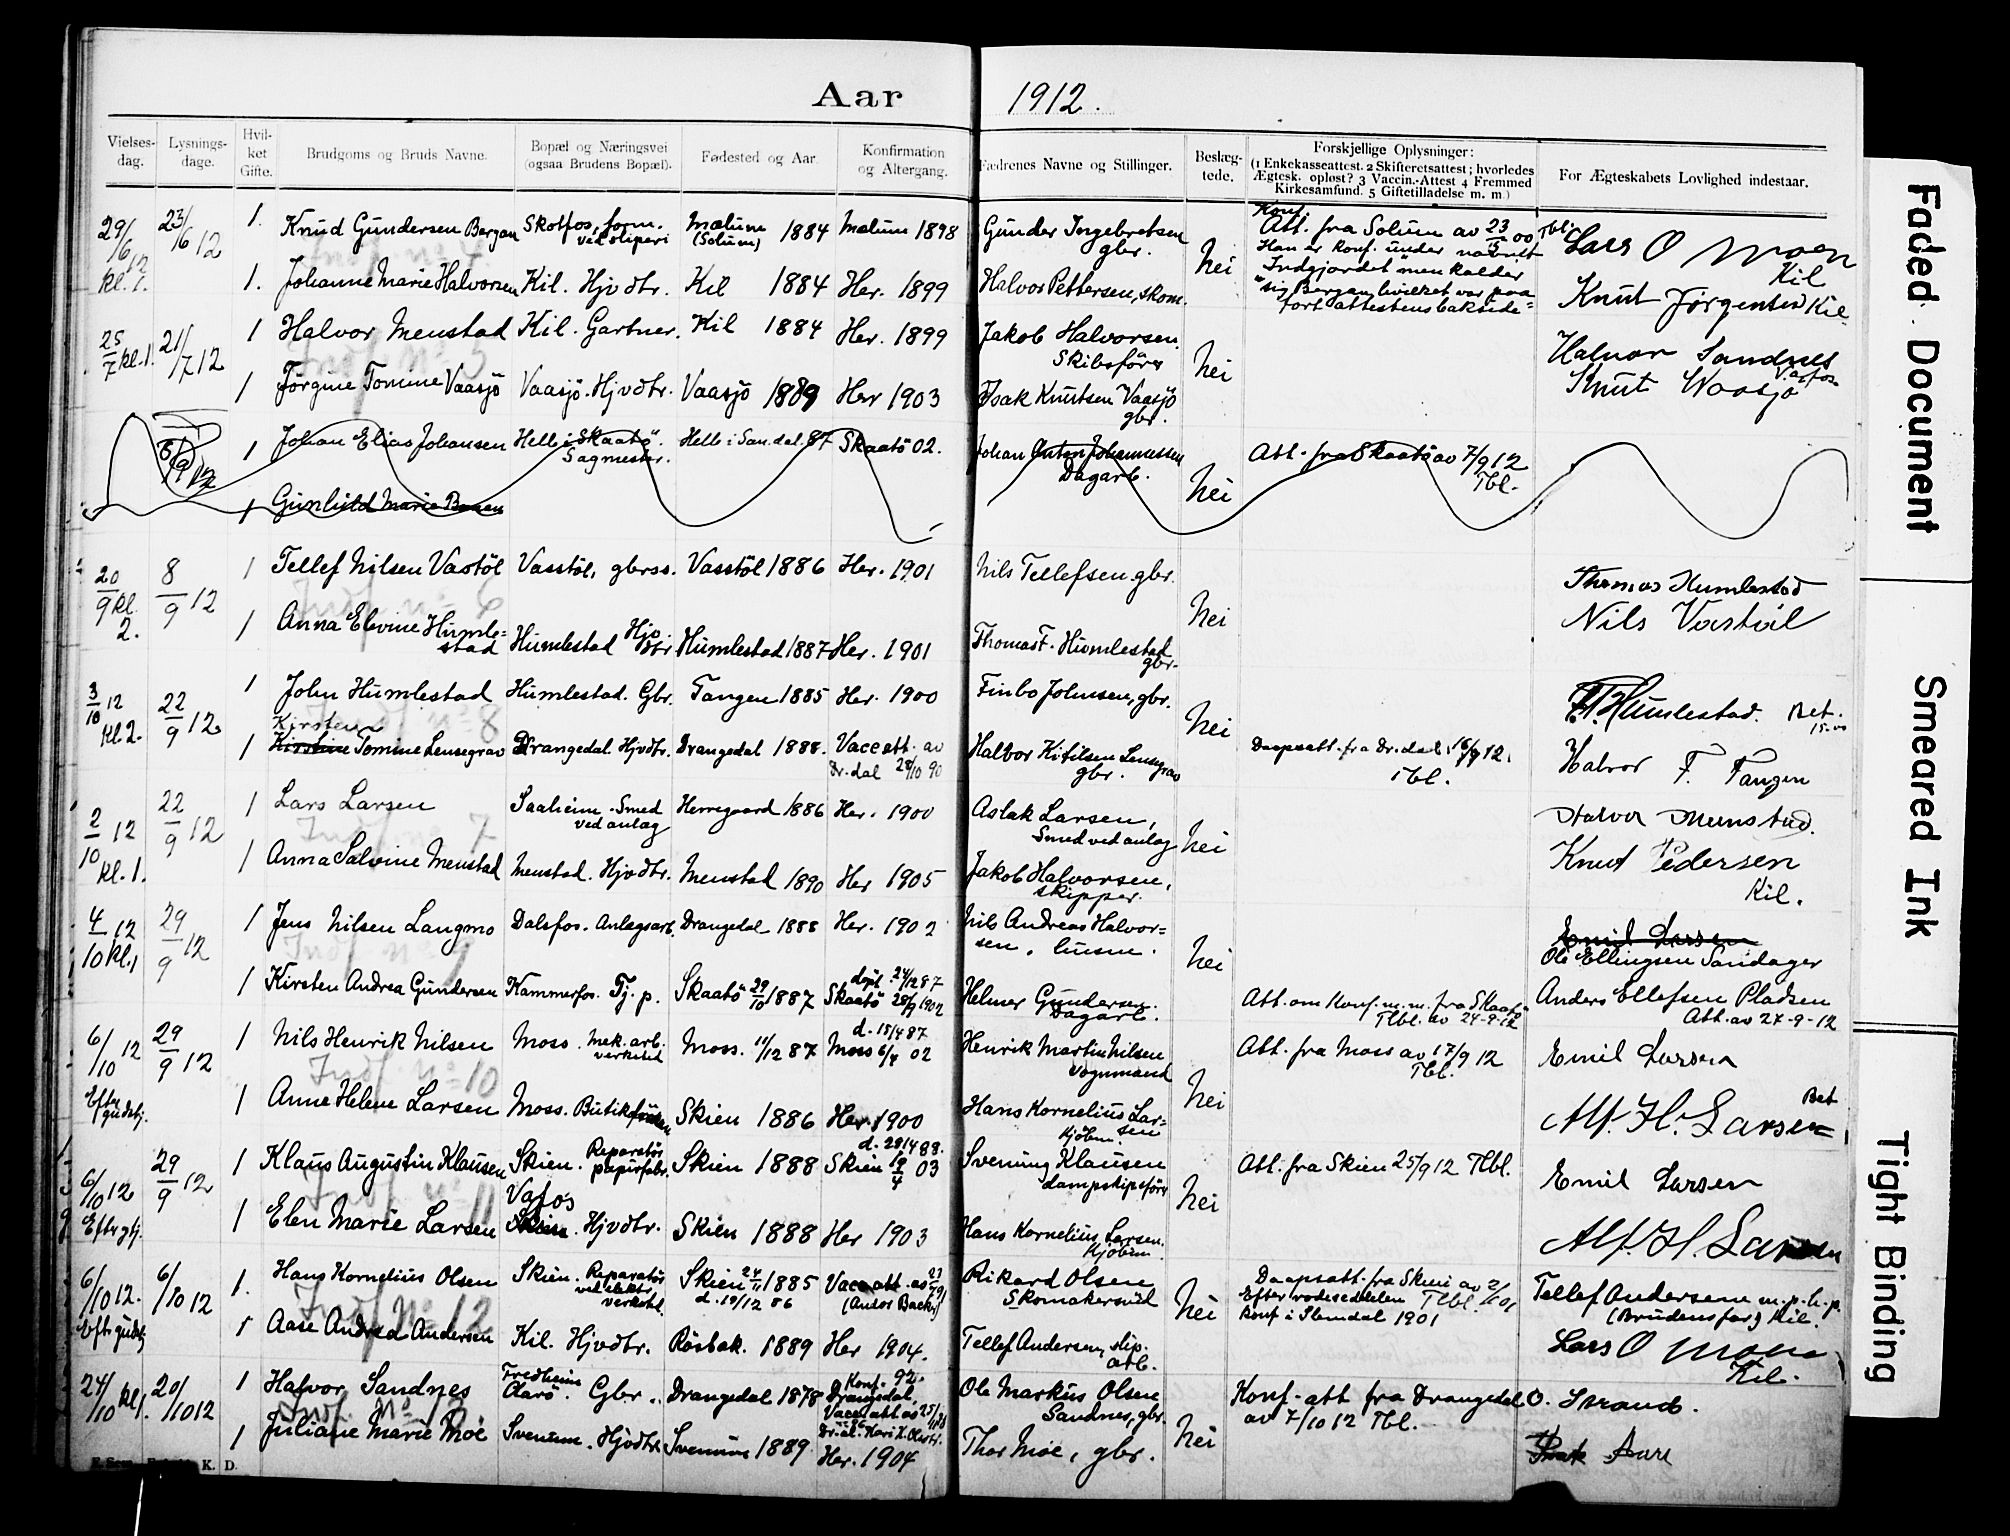 Aar 1912.
Vielses-dag. Lysnings-dage. Hvil-ket Gifte. Brudgoms og Bruds Navne. Bopæl og Næringsvei (ogsaa Brudens Bopæl). Fødested og Aar. Konfirmation og Altergang. Fædrenes Navne og Stillinger. Beslæg-tede. Forskjellige Oplysninger: (1 Enkekasseattest. 2 Skifteretsattest; hvorledes Ægtesk. opløst? 3 Vaccin.-Attest 4 Fremmed Kirkesamfund. 5 Giftetilladelse m. m.) For Ægteskabets Lovlighed indestaar.
29/6 12 kl. 1. 23/6 12 1. Knud Gundersen Bergan Skotfos, form. ved sliperi Mælum (Solum) 1884 Mælum 1898 Gunder Ingebretsen gbr. Nei Konf. Att. fra Solum av 23/5 00 Tbl. Lars O Moen Kil
1. Johanne Marie Halvorsen Kil. Hjvdtr. Kil 1884 Her. 1899 Halvor Pettersen, skom. Han er konf. under navnet "Indgjordet" men kalder sig Bergan hvilket var paa ført attestens bakside Knut Jørgensen Kil
25/7 kl. 1. 21/7 12 1 Halvor Menstad Kil. Gartner. Kil 1884 Her. 1899 Jakob Halvorsen. Skibsfører Nei Halvor Sandnes
1 Jörgine Tomine Vaasjö Vaasjö. Hjvdtr. Vaasjö 1889 Her 1903 Isak Knutsen Vaasjö gbr. Knut Waasjö
8/9 12 1 Johan Elias Johansen Helle i Skaatö. Sagmester. Helle i San.dal. 87 Skaatö 02. Johan Anton Johannessen Dagarb. Nei Att. fra Skaatö av 7/9 12 Tbl.
1 Gunhild Marie
20/9 kl. 2. 8/9 12 1 Tellef Nilsen Vastöl Vasstöl, gbrss. Vasstöl 1886 Her. 1901 Nils Tellefsen gbr. Nei Thomas Humlestad
1 Anna Elevine Humle=stad Humlestad Hjv dtr. Humlestad 1887 Her. 1901 Thomas F. Humlestad gbr. Nils Vastöl
3/10 12 kl. 2. 22/9 12 1 John Humlestad Humlestad. Gbr. Tangen 1885 Her. 1900 Finbo Johnsen, gbr. Nei Humlestad. Bet. 15.00
1 Kirsten Kirstine Tomine Lensegrav Drangedal Hjvdtr. Drangedal 1888. Vacc att. av Dr.dal 28/10 90 Halvor Kittilsen Lensegrav gbr. Daapsatt. fra Dr.dal 16/9 12. Tbl. Halvor F. Tangen
2/10 12 kl. 1. 22/9 12 1 Lars Larsen Saaheim. Smed ved anlag Herregaard 1886 Her. 1900 Aslak Larsen, Smed ved anlag Nei Halvor Menstad.
1 Anna Salvine Menstad Menstad. Hjvdtr. Menstad 1890 Her 1905 Jakob Halvorsen, skipper. Knut Pedersen Kil.
4/10 12 kl. 1 29/9 12 1 Jens Nilsen Langmo Dalsfos. Anlegsarb. Drangedal 1888 Her. 1902 Nils Andreas Halvor=sen, husm. Nei Emil Larsen Ole Ellingsen Sandager
1 Kirsten Andrea Gundersen Kammerfos. Tj. p. Skaatö 29/10 1887 döpt. 24/12 87 Skaatö 28/9 1902 Helmer Gundersen. Dagarb. Att. om Konf. m.m. fra Skaatö Tbl. av 24-9-12 Anders Ellefsen Pladsen Att. av 24-9-12
6/10 12 Efter gudstj. 29/9 12 1 Nils Henrik Nilsen Moss. Mek. arb. verksted Moss. 11/12 87 d. 15/4 87 Moss 6/4 02 Henrik Martin Nilsen Vognmand Nei Att. fra Moss av 17/9 12 Tbl. Emil Larsen
1 Anne Helene Larsen Moss. Butik Skien 1886 Her. 1900 Hans Kornelius Lar=sen Kjöbm. Alf. H. Larsen Bet
6/10 12 Eftr gtj. 29/9 12 1 Klaus Augustin Klausen Skien. Reparatör papirfabr. Skien 1888 d. 29/4 88. Skien 19/4 03 Svenung Klausen dampskipsförer Nei Att. fra Skien 25/9 12 Tlbl. Emil Larsen
1 Elen Marie Larsen Vafos Skien. Hjvdtr. Skien 1888 Her 1903 Hans Kornelius Larsen. Kjöbm Alf. H. Larsen
6/10 12. Eftr gudstj 6/10 12 1. Hans Kornelius Olsen Skien. Reparatör ved elektr. verksted. Skien 24/11 1885 d. 19/12 86 Vacc att. av (Andor Backer) Rikard Olsen Skomakersvend Nei Daapsatt. fra Skien av Efter rodesedelen Tlbl. Konf i Slemdal 1901 Tellef Andersen m.p.h.p. (Brudens far) Kil.
1 Aase Andrea Andersen Kil. Hjvdtr. Rösbak. 1889 Her 1904. Tellef Andersen, slip. arb. Lars O Moen Kil.
24/10 kl 1. 20/10 12 1 Halvor Sandnes Fredheim Aarö. Gbr. Drangedal 1878 Konf. 92. Drangedal, Vacc att Ole Markus Olsen Sandnes, gbr. Nei Konf. att fra Drangedal av 7/10 12 Tbl. O. Strand.
1 Juliane Marie Moe Svenum. Hjvdtr. Svenum 1889. Her. 1904 Thor Moe, gbr. Isak Aarö
K. D.
Faded Document
Smeared Ink
Tight Binding